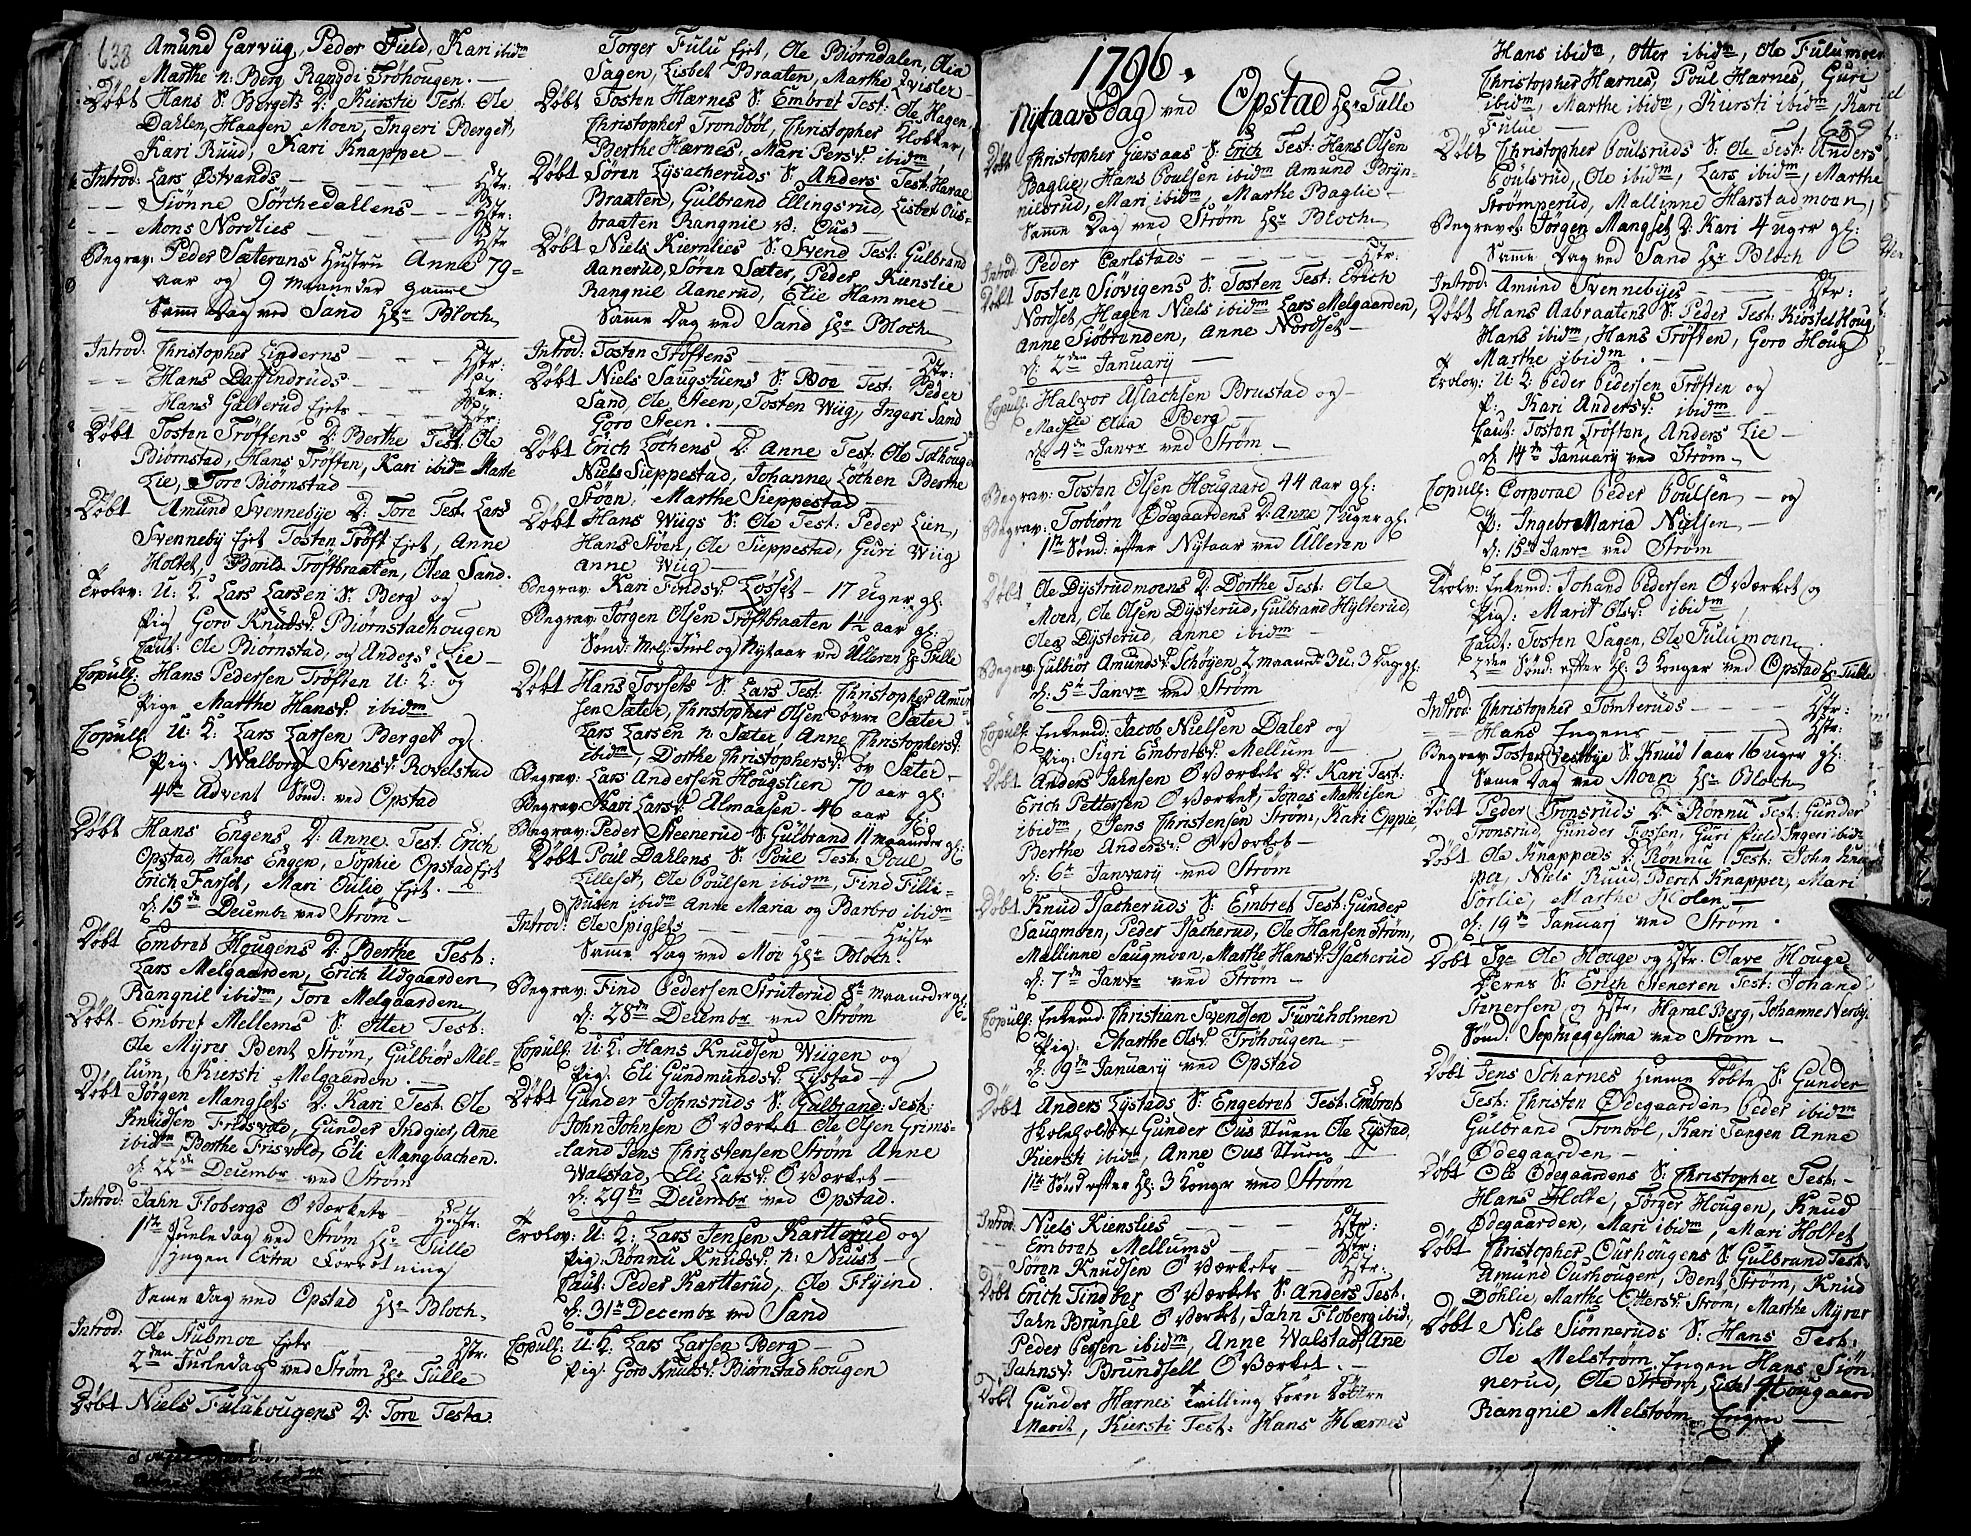 638
Amund Garviig, Peder Field, Kari ibidm
Marthe n: Berg, Rangdi Trøhougen.
Døbt Hans S: Bergets D: Kirstie Test: Ole
Dahlen, Haagen Moen, Ingeri Berget,
Kari Ruud, Kari Knapper
Introd: Lars Østvands Hstr:
Siønne Sørchedallens Hstr:
Mons Nordlies Hstr
Begrav: Peder Sæterens Hustru Anne 79
aar og 9 Maaneder gamel
Samme Dag ved Sand Hr Bloch
Introd: Christopher Linderns Hstr:
Hans Daffindruds Hstr:
Hans Galterud Ejets Hstr:
Døbt Tosten Trøftens D: Berthe Test: Ole
Biørnstad, Hans Trøften, Kari ibidm Marte
Lie, Tore Biørnstad
Døbt Amund Svennebye D: Tore Test: Lars
Svenneby Ejet Tosten Trøft Ejet, Anne
Holtet, Borild Trøftbraaten, Olea Sand.
Trolov: U: K: Lars Larsen S: Berg og
Pig Goro Knudsd: Biørnstadhougen
Caut: Ole Biørnstad, og Anders Lie
Copull: Hans Pedersen Trøften U: K: og
Pige Marthe Hansd: ibidm
Copull: U: K: Lars Larsen Berget og
Pig: Walborg Svensd: Rovelstad
4de Advent Sønd: ved Opstad
Døbt Hans Engens D: Anne Test: Erich
Opstad, Hans Engen, Sophie Opstad Ejet
Erich Farset, Mari Oulie Ejet.
d: 15de Decembr ved Strøm
Døbt Embret Hougens D: Berthe Test:
Lars Melgaarden, Erich Udgaarden
Rangnil ibidm, Tore Melgaarden
Døbt Embret Mellems S: Otter Test:
Ole Myrer Bent Strøm, Gulbiør Mel-
lum, Kiersti Melgaarden.
Døbt Jørgen Mangsets D: Kari Test: Ole
Knudsen Fridsvold, Gunder Indgier, Anne
ibidm Berthe Frisvold, Eli Mangbachen.
d: 22de Decembr ved Strøm
Introd: Jahn Flobergs O Værkets Hustr:
1ste Juule Dag ved Strøm Hr Tulle
Ingen Extra Forretning
Same Dag ved Opstad Hr Bloch
Introd: Ole Stubmoe Ejets Hstr.
2den Juuledag ved Strøm Hr Tulle
Døbt Niels Fuluhougens D: Tore Testa.
Torger Fulu Ejet, Ole Biørndalen, Olia
Sagen, Lisbet Braaten, Marthe Qvisler
Døbt Tosten Hærnes S: Embret Test: Ole Hagen
Christopher Trondbøl, Christopher Klokker,
Berthe Hærnes, Mari Persd: ibidm
Døbt Søren Lysacheruds S: Anders Test: Haral
Braaten, Gulbrand Ellingsrud, Lisbet Ous-
braaten Rangnil v: Ous
Døbt Niels Kiernlies S: Svend Test: Gulbrand
Aanerud, Søren Sæter, Peder Kienslie
Rangnil Aanerud, Elie Hammer
Samme Dag ved Sand Hr Bloch
Introd: Tosten Trøftens Hstr:
Døbt Niels Saugstuens S: Boe Test: Peder
Sand, Ole Steen, Tosten Wiig, Ingeri Sand
Goro Steen.
Døbt Erich Løchens D: Anne Test: Ole Tolhouge
Niels Sieppestad, Johanne Løchen Berthe
Støen, Marthe Sieppestad
Døbt Hans Wiigs S: Ole Test: Peder Lien,
Hans Støen, Ole Sieppestad, Guri Wiig
Anne Wiig
Begrav: Kari Findsd: Løsset 17 uger gl:
Begrav: Jørgen Olsen Trøftbraaten 1 1/2 aar gl:
Sønd: Mell: Juel og Nytaar ved Ulleren Hr Tulle
Døbt Hans Tovsets S: Lars Test: Christopher Amund-
sen Sæter, Christopher Olsen øvre Sæter
Lars Larsen n: Sæter Anne Christophersd:
ibidm, Dorthe Christophersd: øv Sæter
Begrav: Lars Andersen Hougstien 70 aar gl:
Begrav: Kari Larsd: Almaasen 46 aar gl:
Begrav: Peder Steenerud S: Gulbrand 11 maaneder gl:
Døbt Poul Dahlens S: Poul Test: Poul
Lilleset, Ole Poulsen ibidm, Find Fillip-
pusen ibidm Anne Maria og Barbro ibidm
Introd: Ole Spigsets Hustr
Samme Dag ved Moe Hr Bloch
Begrav: Find Pedersen Struterud 8 Maaneder gl:
d: 28de Decembr ved Strøm
Copull: U: K: Hans Knudsen Wiigen og
Pig: Eli Gundmundsd: Lystad
Døbt Gunder Johnsruds S: Gulbrand Test:
John Johnsen O Værket Ole Olsen Grims-
land Jens Christensen Strøm Anne
Walstad, Eli Larsd: O Værket
d: 29de Decembr ved Opstad.
Trolov: U: K: Lars Jensen Kartterud og
Pig: Rønnu Knudsd: n: Nuust
Caut: Peder Kartterud, Ole Flyind
d: 31te Decembr ved Sand
Copull: U: K: Lars Larsen Berg
Pig: Goro Knudsd: Biørnstadhougen
1796.
Nytaarsdag ved Opstad Hr Tulle
Døbt Christopher Giersaas S: Erich Test: Hans Olsen
Baglie, Hans Poulsen ibidm Amund Bryn-
nilsrud, Mari ibidm Marthe Baglie
Samme Dag ved Strøm Hr Bloch
Introd: Peder Carlstads Hstr:
Døbt Tosten Siøvigens S: Tosten Test: Erich
Nordset, Hagen Niels ibidm Lars Melgaarden,
Anne Siøstranden, Anne Nordset
d: 2den January
Copull: Halvor Aslachsen Brustad og
Madlle Olia Berg
d: 4de Janvr ved Strøm
Begrav: Tosten Olsen Hougaard 44 aar gl:
Begrav: Torbiørn Ødegaardens D: Anne 7 uger gl:
1ste Sønd: efter Nytaar ved Ulleren
Døbt Ole Dystrudmoens D: Dorthe Test: Ole
Moen, Ole Olsen Dysterud, Gulbrand Hylterud,
Olea Dysterud, Anne ibidm
Begrav: Gulbiør Amundsd: Schøyen 2 maaned 3 u: 3 Dag gl:
d: 5te Janvr ved Strøm
Copull: Enkemd: Jacob Nielsen Daler og
Pig: Sigri Embretsd: Mellum
Døbt Anders Jahnsen O Værkets D: Kari Test:
Erich Pettersen O Værket, Jonas Mathisen
ibidm, Jens Christensen Strøm, Kari Oppie,
Berthe Andersd: O Værket
d: 6te January ved Strøm
Døbt Knud Isacheruds S: Embret Test: Gunder
Saugmoen, Peder Isacherud, Ole Hansen Strøm,
Mallinne Saugmoen, Marthe Hansd: Isacherud
d: 7de Janvr ved Strøm
Copull: Enkemd: Christian Svendsen Furuholmen
Pig: Marthe Olsd: Trøhougen
d: 9de January ved Opstad
Døbt Anders Lystads S: Engebret Test: Embret
Skoleholder Gunder Ous Stuen Ole Lystad,
Kiersti ibidm, Anne Ous Stuen
1ste Sønd efter Hl: 3 Konger ved Strøm
Introd: Niels Kienslies Hstr:
Embret Mellums Hstr:
Søren Knudsen O Værkets Hstr:
Døbt Erich Tindbergs O Værkets S: Anders Test:
Jahn Brunsel O Værket, Jahn Floberg ibid,
Peder Persen ibidm, Anne Walstad, Ane
Jahnsd: Brundsell O Værket.
Døbt Gunder Hærnes Tvilling børn Døttre
Marit, Kiersti Test: Hans Hærnes
Hans ibidm, Otter ibidm, Ole Fulumoen
Christopher Hærnes, Poul Hærnes, Guri
ibidm, Marthe ibidm, Kiersti ibidm, Kari
Fulue
639
Døbt Christopher Poulsruds S: Ole Test: Anders
Poulsrud, Ole ibidm, Lars ibidm, Marthe
Strømperud, Mallinne Harstadmoen,
Begravet: Jørgen Mangset D: Kari 4 uger gl:
Samme Dag ved Sand Hr Bloch
Introd: Amund Svennebyes Hstr:
Døbt Hans Aabraatens S: Peder Test: Kiøstel Houg
Hans ibidm, Hans Trøften, Goro Houg
Marthe ibidm.
Trolov: U: K: Peder Pedersen Trøften og
P: Kari Andersd: ibidm
Caut: Tosten Trøften, Anders Lie
d: 14de January ved Strøm
Copull: Corporal Peder Poulsen og
P: Ingebr Maria Nielsen
d: 15de Janvr ved Strøm
Trolv: Enkemd: Johand Pedersen O Værket og
Pig: Marit Olsd: ibidm
Caut: Tosten Sagen, Ole Fulumoen
2den Sønd: efter Hl: 3 Konger ved Opstad Hr Tulle
Introd: Christopher Tomteruds Hstr:
Hans Engens Hstr:
Begrav Tosten Vestbye S: Knud 1 aar 16 uger gl:
Samme Dag ved Moen Hr Bloch
Døbt Peder Tronsruds D: Rønnu Test: Gunder
Tronsrud, Gunder Fossen, Guri Field, Ingeri ibid:
Døbt Ole Knappers D: Rønnu Test: John Knap-
per, Niels Ruud, Berit Knapper, Mari
Sørlie, Marthe Holen
d: 19de January ved Strøm
Døbt Sge Ole Houge og Hstr. Olave Houge
Deres S: Erich Steneren Test: Johand
Stenersen og Hstr, Haral Berg, Johanne Nerby.
Sønd: Sephuagesima ved Strøm
Døbt Jens Scharnes hiemme Døbte S: Gunder
Test: Christen Ødegaarden Peder ibidm
Gulbrand Tronbøl, Kari Tengen Anne
Ødegaarden
Døbt Ole Ødegaardens S: Christopher Test:
Hans Holte, Torger Hougen, Knud
Ødegaarden, Mari ibidm, Mari Holtet
Døbt Christopher Ourhougens S: Gulbrand Test:
Amund Ourhougen, Bent Strøm, Knud
Døhlie, Marthe Ottersd: Strøm, Marthe Myrer
Døbt Nils Siønneruds S: Hans Test:
Ole Melstrøm Engen Hans Siøn-
nerud, Ole Strøm, Lisbet Hougaard
Rangnil Melstrøm Engen